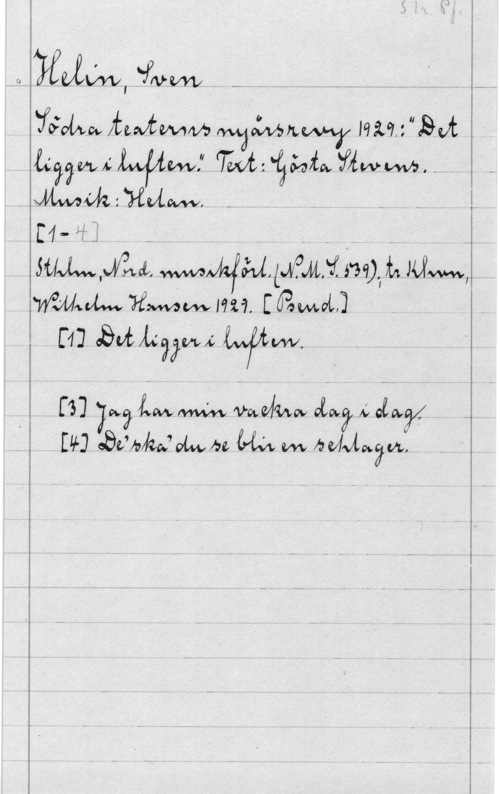 Str. Pf.
Helin, Sven
Södra teaterns nyårsrevy 1929: "Det
ligger i luften." Text: Gösta Stevens.
Musik: Helan.
[1-4]
Sthlm, Nord. musikförl. (N.M.S. 539), tr Khvn,
Wilhelm Hansen 1929. [Pseud.]
[1] Det ligger i luften.
[3] Jag har min vackra dag i dag.
[4] De' ska' du se blir en schlager.